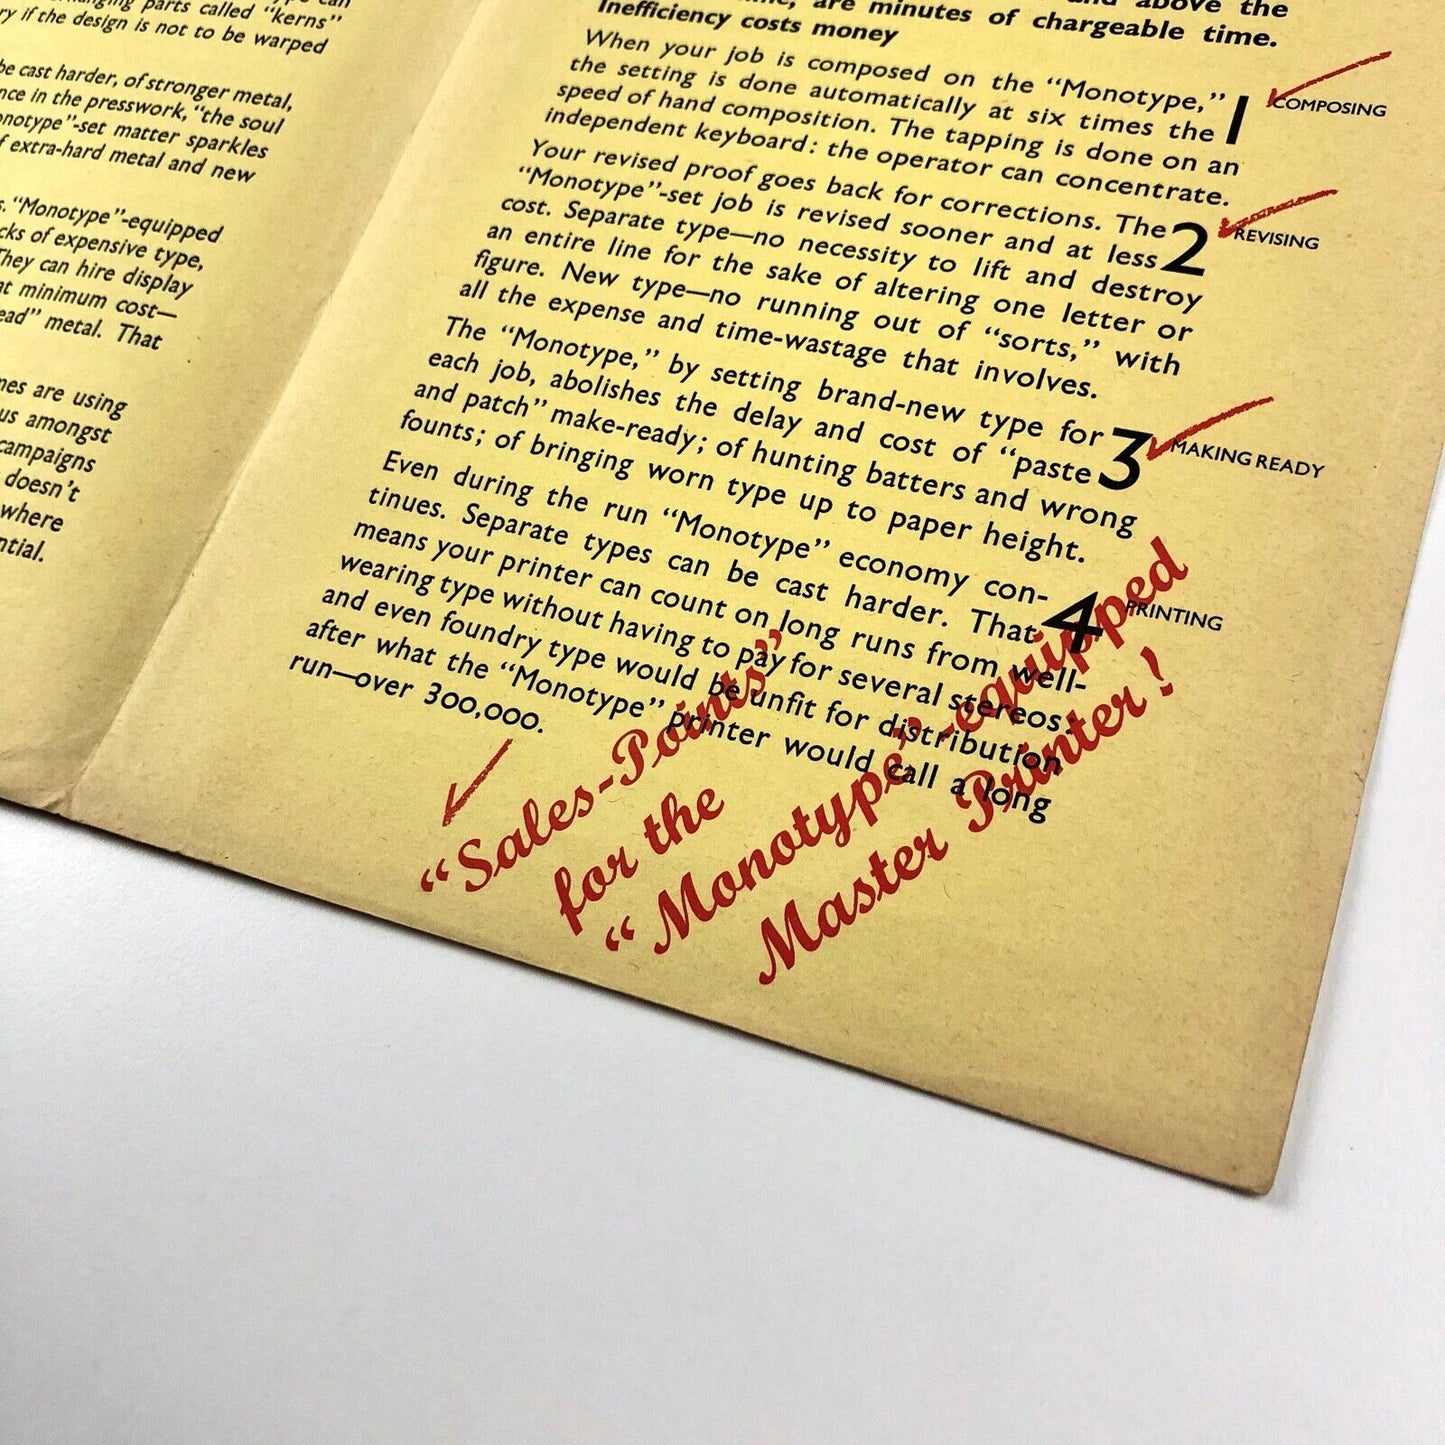 hanging parts called “kerns”
if the design is not to be warped
be cast harder, of stronger metal,
in the presswork, “the soul
-set matter sparkles
extra-hard metal and new
“Monotype”-equipped
of expensive type,
They can hire display
at minimum cost—
metal. That
are using
amongst
campaigns
doesn’t
where
and above the
are minutes of chargeable time.
Inefficiency costs money
When your job is composed on the “Monotype,”
the setting is done automatically at six times the
speed of hand composition. The tapping is done on an
independent keyboard: the operator can concentrate.
1 COMPOSING
Your revised proof goes back for corrections. The
“Monotype”-set job is revised sooner and at less
cost. Separate type—no necessity to lift and destroy
an entire line for the sake of altering one letter or
figure. New type—no running out of “sorts,” with
all the expense and time-wastage that involves.
2 REVISING
The “Monotype,” by setting brand-new type for
each job, abolishes the delay and cost of “paste
and patch” make-ready; of hunting batters and wrong
founts; of bringing worn type up to paper height.
3 MAKING READY
Even during the run “Monotype” economy con-
tinues. Separate types can be cast harder. That
means your printer can count on long runs from well-
wearing type without having to pay for several stereos;
and even foundry type would be unfit for distribution
after what the “Monotype” printer would call a long
run—over 300,000.
4 PRINTING
“Sales-Points”
for the
“Monotype”-equipped
Master Printer!